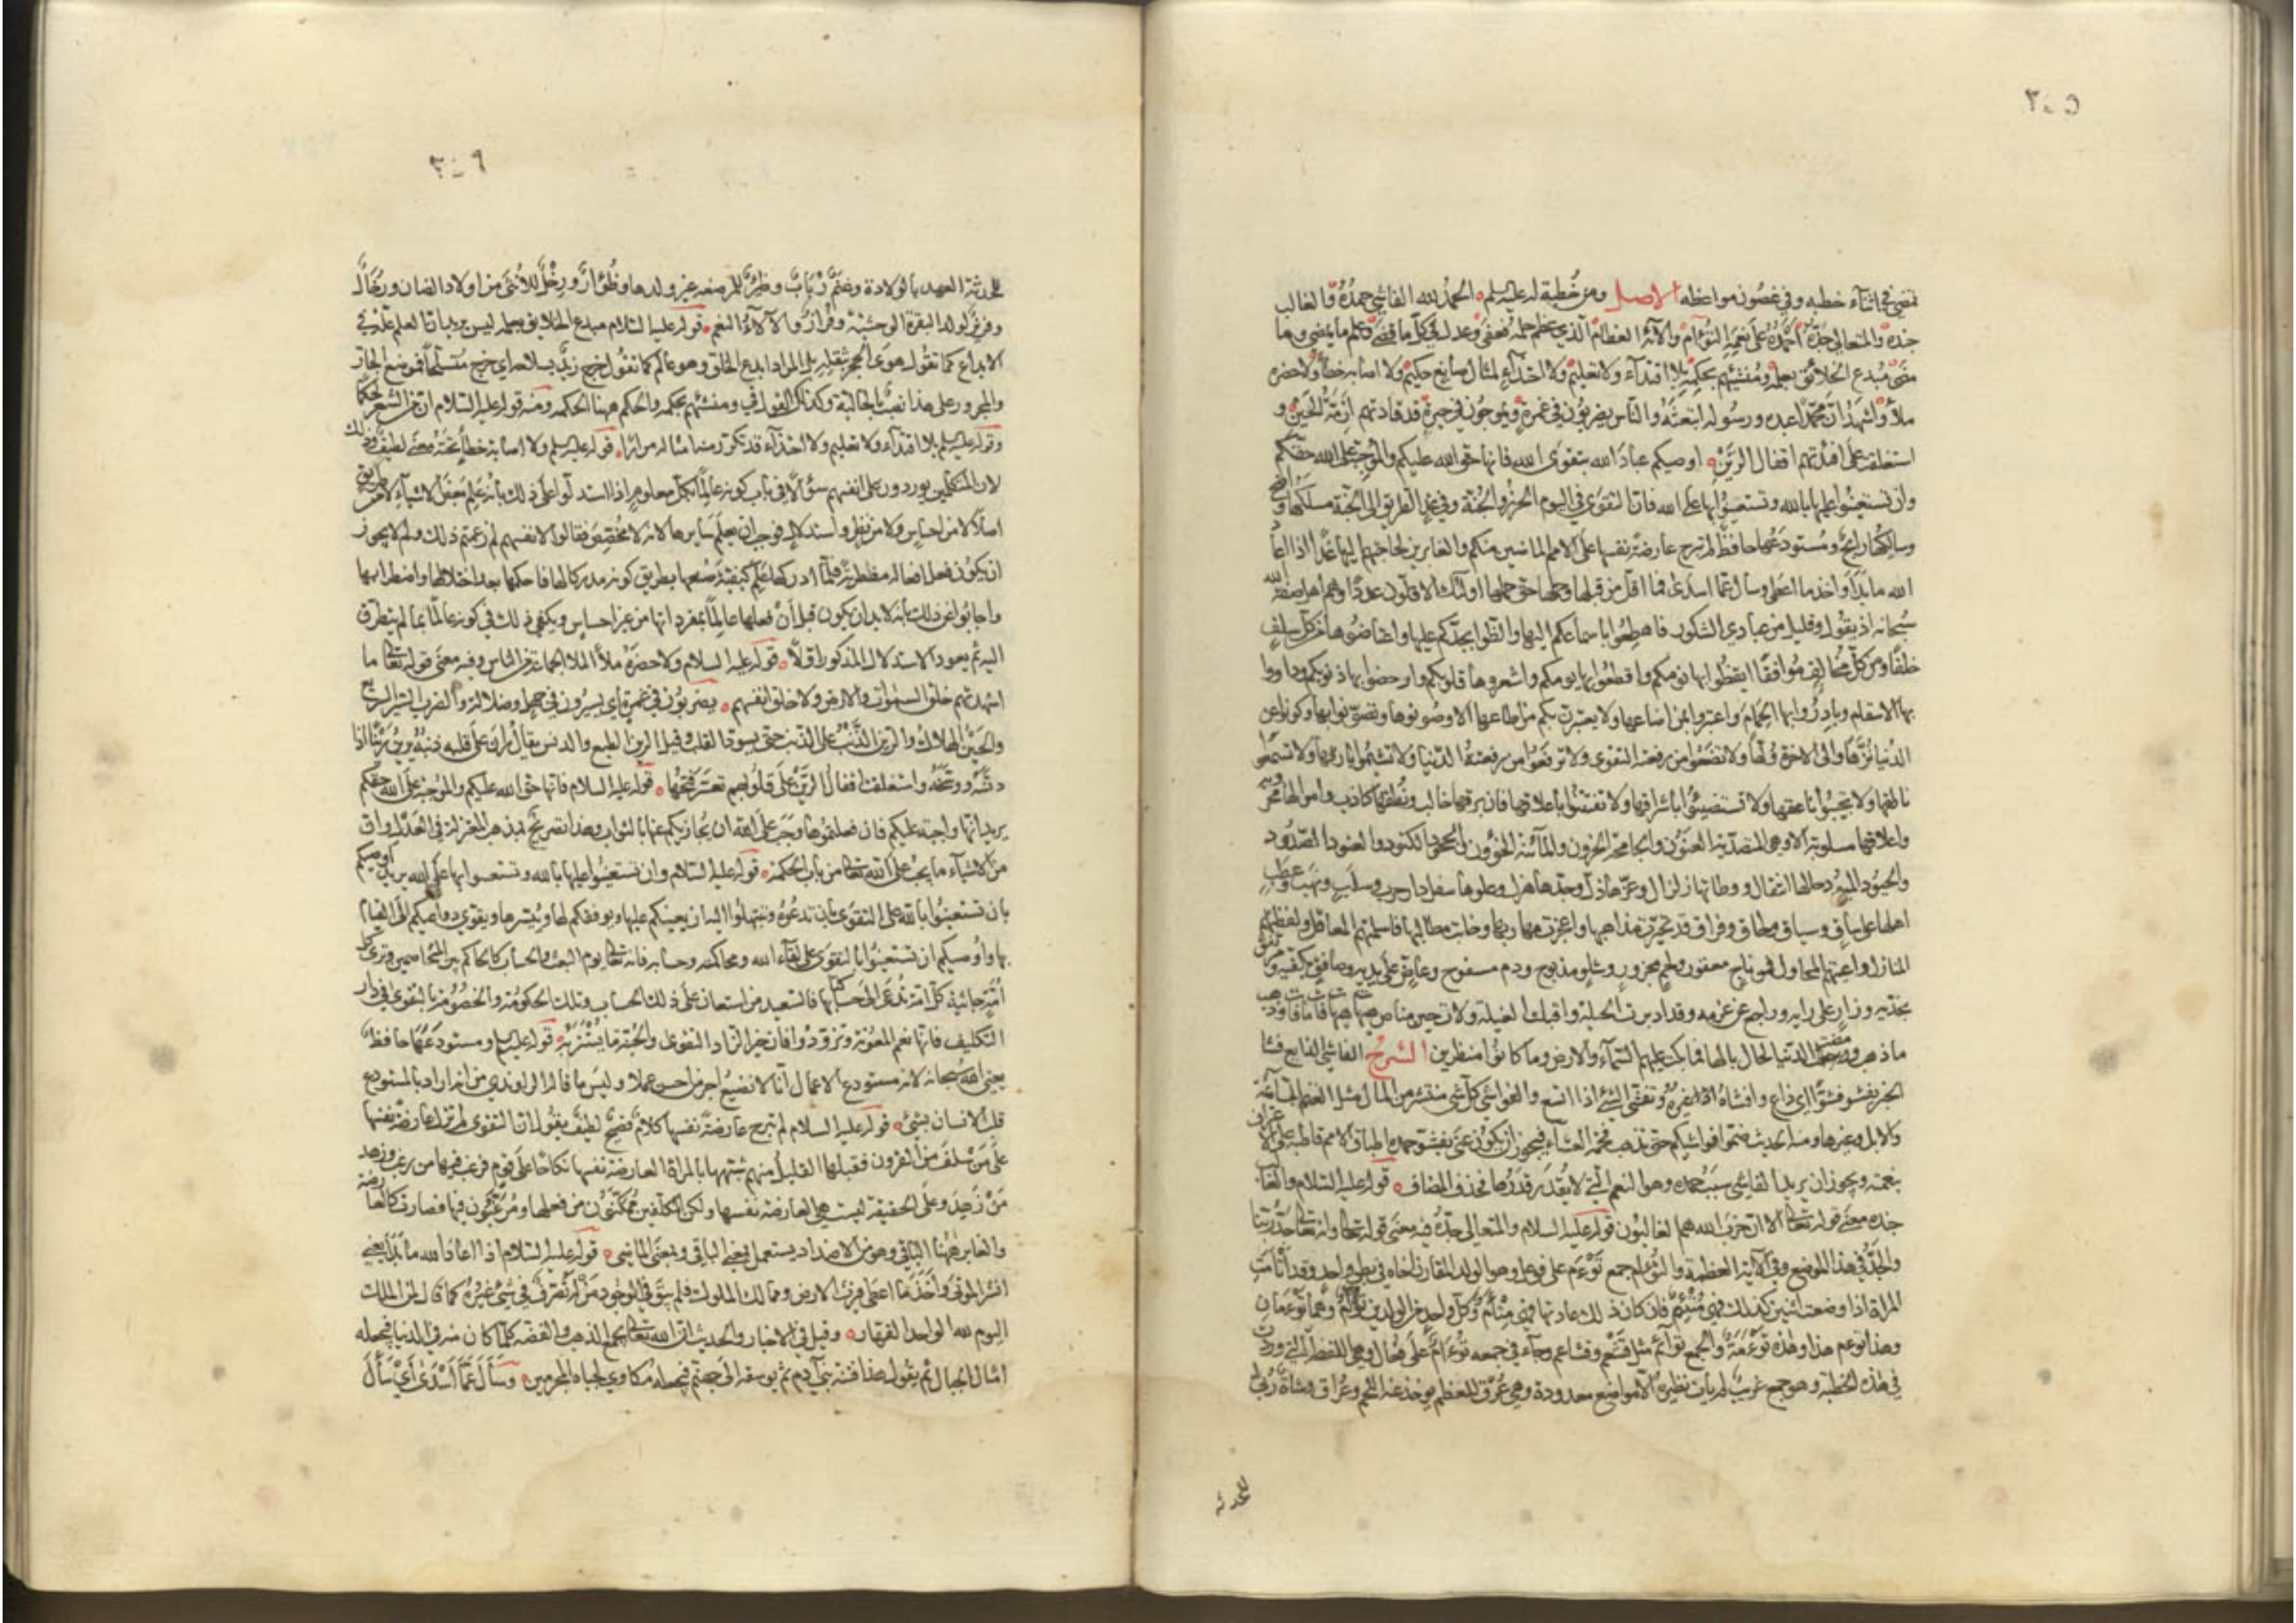 ٣٠٥
تمضى فى اثناء خطبه وفى غصون مواعظه الاصل ومن خطبة له عليه السلم الحمد لله الفاشى حمده والغالب
جنده والمتعالى جده احمده على نعمه التؤام والآئه العظام الذى عظم حلمه فعفى وعدل فى كل ما قضى وعلم ما يمضى وما
مضى مبدع الخلائق بعلمه ومنشئهم بحكمه بلا اقتداء ولا تعليم ولا احتذاء لمثال صانع حكيم ولا اصابة خطأ ولا حضره
ملأ واشهد ان محمدا عبده ورسوله ابتعثه والناس يضربون فى غمرة ويموجون فى حيرة قد قادتهم ازمة الحين و
استغلقت على افئدتهم اقفال الرين اوصيكم عباد الله بتقوى الله فانها حق الله عليكم والموجبة على الله حقكم
وان تستعينوا عليها بالله وتستعينوا بها على الله فان التقوى فى اليوم الحرز والجنة وفى غد الطريق الى الجنة مسلكها واضح
وسالكها رابح ومستودعها حافظ لم تبرح عارضة نفسها على الامم الماضين منكم والغابرين لحاجتهم اليها غدا اذا اعاد
الله ما ابدأ واخذ ما اعطى وسأل عما اسدى فما اقل من قبلها وحملها حق حملها اولئك الاقلون عددا وهم اهل صفة الله
سبحانه اذ يقول وقليل من عبادى الشكور فاهطعوا باسماعكم اليها والظوا بجدكم عليها واعتاضوها من كل سلف
خلفا ومن كل مخالف موافقا ايقظوا بها نومكم واقطعوا بها يومكم واشعروها قلوبكم وارحضوا بها ذنوبكم وداووا
بها الاسقام وبادروا بها الحمام واعتبروا بمن اضاعها ولا يعتبرن بكم من اطاعها الا وصونوها وتصونوا بها وكونوا عن
الدنيا نزاها والى الاخرة ولاها ولا تضعوا من رفعته التقوى ولا ترفعوا من رفعته الدنيا ولا تشيموا بارقها ولا تسمعوا
ناطقها ولا تجيبوا ناعقها ولا تستضيئوا باشراقها ولا تفتنوا باعلاقها فان برقها خالب ونطقها كاذب واموالها محروبة
واعلاقها مسلوبة الا وهى المتصدية العنون والجامحة الحرون والمائنة الخؤون والجحود الكنود والعنود الصدود
والحيود الميود حالها انتقال ووطأتها زلزال وعزها ذل وجدها هزل وعلوها سفل دار حرب وسلب ونهب وعطب
اهلها على ساق وسياق ولحاق وفراق قد تحيرت مذاهبها واعجزت مهاربها وخابت مطالبها فاسلمتهم المعاقل ولفظتهم
المنازل واعيتهم المحاول فمن ناج معقور ولحم مجزور وشلو مذبوح ودم مسفوح وعاض على يديه وصافق بكفيه ومرتفق
بخديه وزار على رايه وراجع عن عزمه وقد ادبرت الحيلة واقبلت الغيلة ولات حين مناص هيهات هيهات قد فات ما فات وذهب
ما ذهب ومضت الدنيا لحال بالها فما بكت عليهم السماء والارض وما كانوا منظرين الشرح الفاشى الذايع فشا
الخبر يفشو فشوا اى ذاع وافشاه غيره وتفشى الشئ اذا اتسع والفواشى كل شئ منتشر من المال مثل الغنم السائمة
والابل وغيرها ومنه الحديث ضموا فواشيكم حتى تذهب فحمة العشاء فيجوز ان يكون عنى بفشو حمده اطباق الامم قاطبة على الاعتراف
بنعمته ويجوز ان يريد بالفاشى سبب حمده وهو النعم التى لا يقدر قدرها فحذف المضاف قوله عليه السلام والغالب
جنده معنى قوله تعالى الا ان حزب الله هم الغالبون قوله عليه السلام والمتعالى جده فيه معنى قوله تعالى وانه تعالى جد ربنا
والجد فى هذا الموضع وفى الآية العظمة والتؤام جمع توءم على فوعل وهو الولد المقارن اخاه فى بطن واحد وقد اتأمت
المراة اذا وضعت اثنين كذلك فهى متئم فان كان ذلك عادتها فهى متآم وكل واحد من الولدين توءم وهما توءمان
وهذا توءم هذا وهذه توءمة والجمع توائم مثل قشعم وقشاعم وجاء فى جمعه تؤام على فعال وهى اللفظة التى وردت
فى هذه الخطبة وهو جمع غريب لم يات نظيره الا مواضع معدودة وهى عرق للعظم يوخذ عنه اللحم وعراق وشاة ربى
للحدثه
٣٠٦
للحدثة العهد بالولادة وغنم رباب وظئر للمرضعة غير ولدها وظؤار ورخل للانثى من اولاد الضان ورخال
وفرير لولد البقرة الوحشية وفرار والآلاء النعم قوله عليه السلام مبدع الخلائق بعلمه ليس يريد ان العلم علة فى
الابداع كما تقول هوى الحجر بثقله بل المراد ابدع الخلق وهو عالم كما تقول خرج زيد بسلاحه اى خرج متسلحا فموضع الجار
والمجرور على هذا نصب بالحالية وكذلك القول فى ومنشئهم بحكمه والحكم ههنا الحكمه ومنه قوله عليه السلام ان من الشعر لحكما
وقوله عليه السلم بلا اقتداء ولا تعليم ولا احتذاء قد تكرر منا مثاله مرارا قوله عليه السلم ولا اصابة خطأ تحته معنى لطيف وذلك
لان المتكلمين يوردون على انفسهم سؤالا فى باب كونه عالما بكل معلوم اذا استدلوا على ذلك بانه علم بعض الاشياء لا من طريق
اصلا لا من احساس ولا من نظر واستدلال فوجب ان يعلم سايرها لانه لا مخصص فقالوا لانفسهم لم زعمتم ذلك ولم لا يجوز
ان يكون فعل افعاله مضطربة فلما ادركها علم كيفية صنعها بطريق كونه مدركا لها فاحكمها بعد اختلالها واضطرابها
واجابوا عن ذلك بانه لا بد ان يكون قبل ان فعلها عالما بمفرداتها من غير احساس ويكفى ذلك فى كونه عالما بما لم يتطرق
اليه ثم يعود الاستدلال المذكور اولا قوله عليه السلام ولا حضرة ملأ الملا الجماعة من الناس وفيه معنى قوله تعالى ما
اشهدتهم خلق السموات والارض ولا خلق انفسهم يضربون فى غمرة اى يسيرون فى جهل وضلالة والضرب السير السريع
والحين الهلاك والرين الذنب على الذنب حتى يسود القلب وقيل الرين الطبع والدنس يقال ران على قلبه ذنبه يرين رينا اى
دنسه ووسخه واستغلقت اقفال الرين على قلوبهم تعسر فتحها قوله عليه السلام فانها حق الله عليكم والموجبة على الله حقكم
يريد انها واجبة عليكم فان فعلتموها وجب على الله ان يجازيكم عنها بالثواب وهذا تصريح بمذهب المعتزلة فى العدل وان
من الاشياء ما يجب على الله تعالى من باب الحكمة قوله عليه السلام وان تستعينوا عليها بالله وتستعينوا بها على الله يريد اوصيكم
بان تستعينوا بالله على التقوى بان تدعوه وتبتهلوا اليه ان يعينكم عليها ويوفقكم لها وييسرها ويقوى دواعيكم الى القيام
بها واوصيكم ان تستعينوا بالتقوى على لقاء الله ومحاكمته وحسابه فانه تعالى يوم البعث والحساب كالحاكم بين المتخاصمين وترى كل
امة جاثية كل امة تدعى الى كتابها فالسعيد من استعان على ذلك الحساب وتلك الحكومة والخصومة بالتقوى فى دار
التكليف فانها نعم المعونة وتزودوا فان خير الزاد التقوى والجنة ما يستتر به قوله عليه السلم ومستودعها حافظ
يعنى الله سبحانه لانه مستودع الاعمال انا لا نضيع اجر من احسن عملا وليس ما قاله الراوندى من انه اراد بالمستودع
قلب الانسان بشئ قوله عليه السلام لم تبرح عارضة نفسها كلام فصيح لطيف يقول ان التقوى لم تزل عارضة نفسها
على من سلف من القرون فقبلها القليل منهم شبهها بالمراة العارضة نفسها نكاحا على قوم فرغب فيها من رغب وزهد
من زهد وعلى الحقيقة ليست هى العارضة نفسها ولكن المكلفين ممكنون من فعلها ومرغبون فيها فصارت كالعارضة
والغابر ههنا الباقى وهو من الاضداد يستعمل بمعنى الباقى وبمعنى الماضى قوله عليه السلام اذا اعاد الله ما ابدأ يعنى
انشر الموتى واخذ ما اعطى ورث الارض ومالك الملوك فلم يبق فى الوجود من له تصرف فى شئ غيره كما قال لمن الملك
اليوم لله الواحد القهار وقيل فى الاخبار والحديث ان الله تعالى يجمع الذهب والفضه كلما كان منه فى الدنيا فيجعله
امثال الجبال ثم يقول هذا فتنة بنى آدم ثم يسوقه الى جهنم فيجعله مكاوى لجباه المجرمين وسأل عما اسدى اى سأل